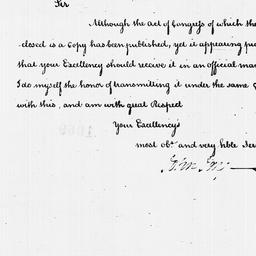 Sir
Although the act of Congress of which the
closed is a Copy has been published, yet it appearing
that your Excellency should receive it in an official
I do myself the honor of transmitting it under the same
with this, and am with great Respect
Your Excellency's
most obt. and very hble